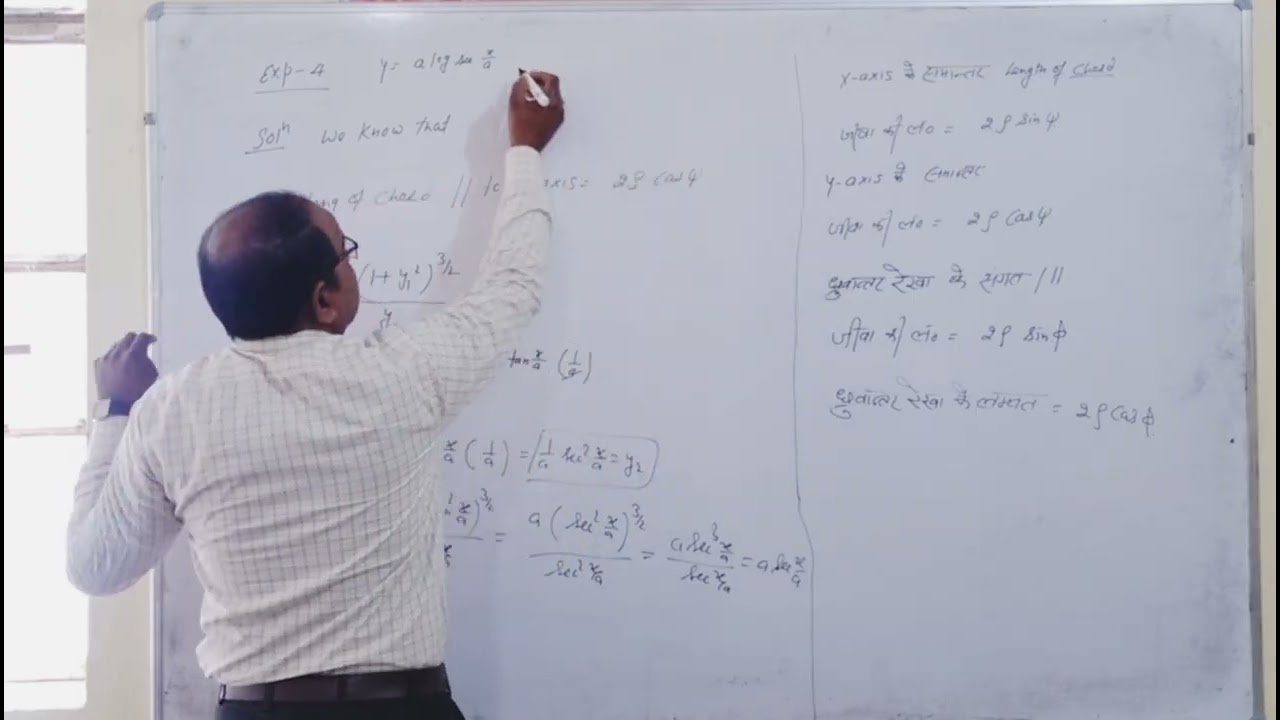 Exp-4 y = a log sec x/a
Solⁿ We know that
of chord // = 2ρ Cos ψ
(1+y₁²)^3/2
y
tan x/a (1/a)
x/a (1/a) = 1/a sec² x/a = y₂
x/a)^3/2 = a (sec² x/a)^3/2 / sec² x/a = a sec³ x/a / sec² x/a = a sec x/a
x-axis के समान्तर Length of Chord
जीवा की लं० = 2ρ sin ψ
y-axis के समान्तर
जीवा की लं० = 2ρ Cos ψ
ध्रुवान्तर रेखा के संगत / ||
जीवा की लं० = 2ρ sin ϕ
ध्रुवान्तर रेखा के लम्वत = 2ρ Cos ϕ